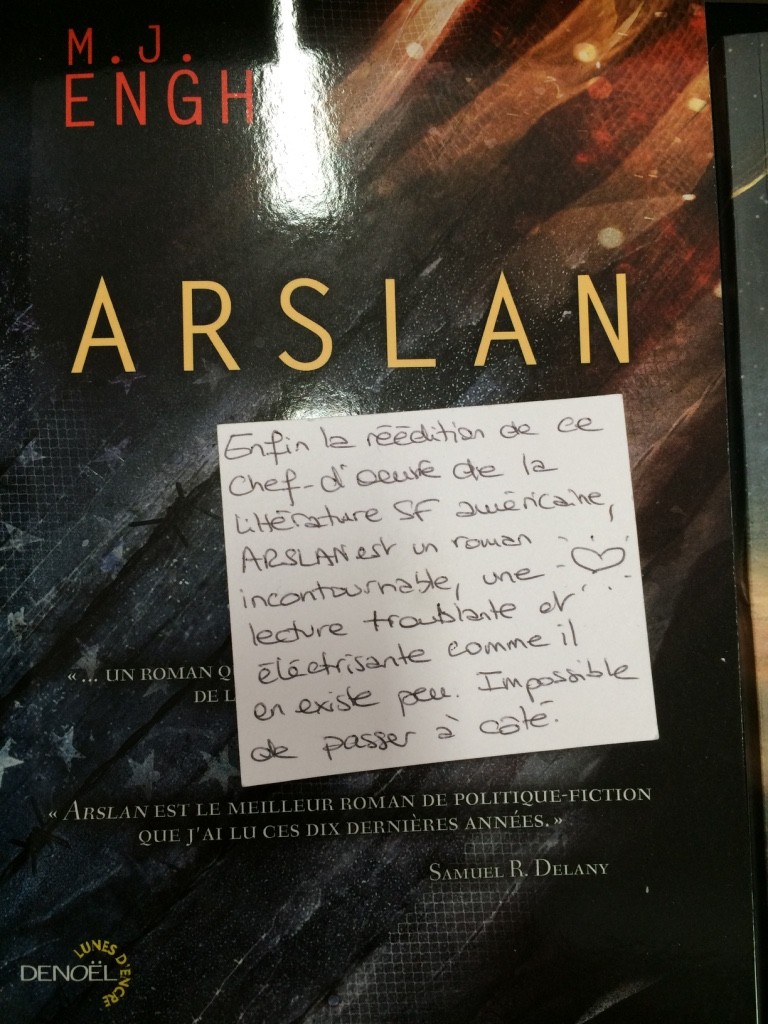 M.J.
ENGH
ARSLAN
Enfin la réédition de ce
chef-d'oeuvre de la
littérature SF américaine,
ARSLAN est un roman
incontournable, une
lecture troublante et
éléctrisante comme il
en existe peu. Impossible
de passer à côté.
«... UN ROMAN
DE
« ARSLAN EST LE MEILLEUR ROMAN DE POLITIQUE-FICTION
QUE J'AI LU CES DIX DERNIÈRES ANNÉES. »
SAMUEL R. DELANY
LUNES D'ENCRE
DENOËL